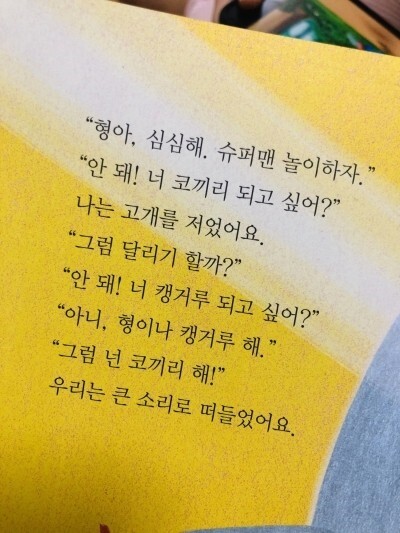 “형아, 심심해. 슈퍼맨 놀이하자.”
“안 돼! 너 코끼리 되고 싶어?”
나는 고개를 저었어요.
“그럼 달리기 할까?”
“안 돼! 너 캥거루 되고 싶어?”
“아니, 형이나 캥거루 해.”
“그럼 넌 코끼리 해!”
우리는 큰 소리로 떠들었어요.